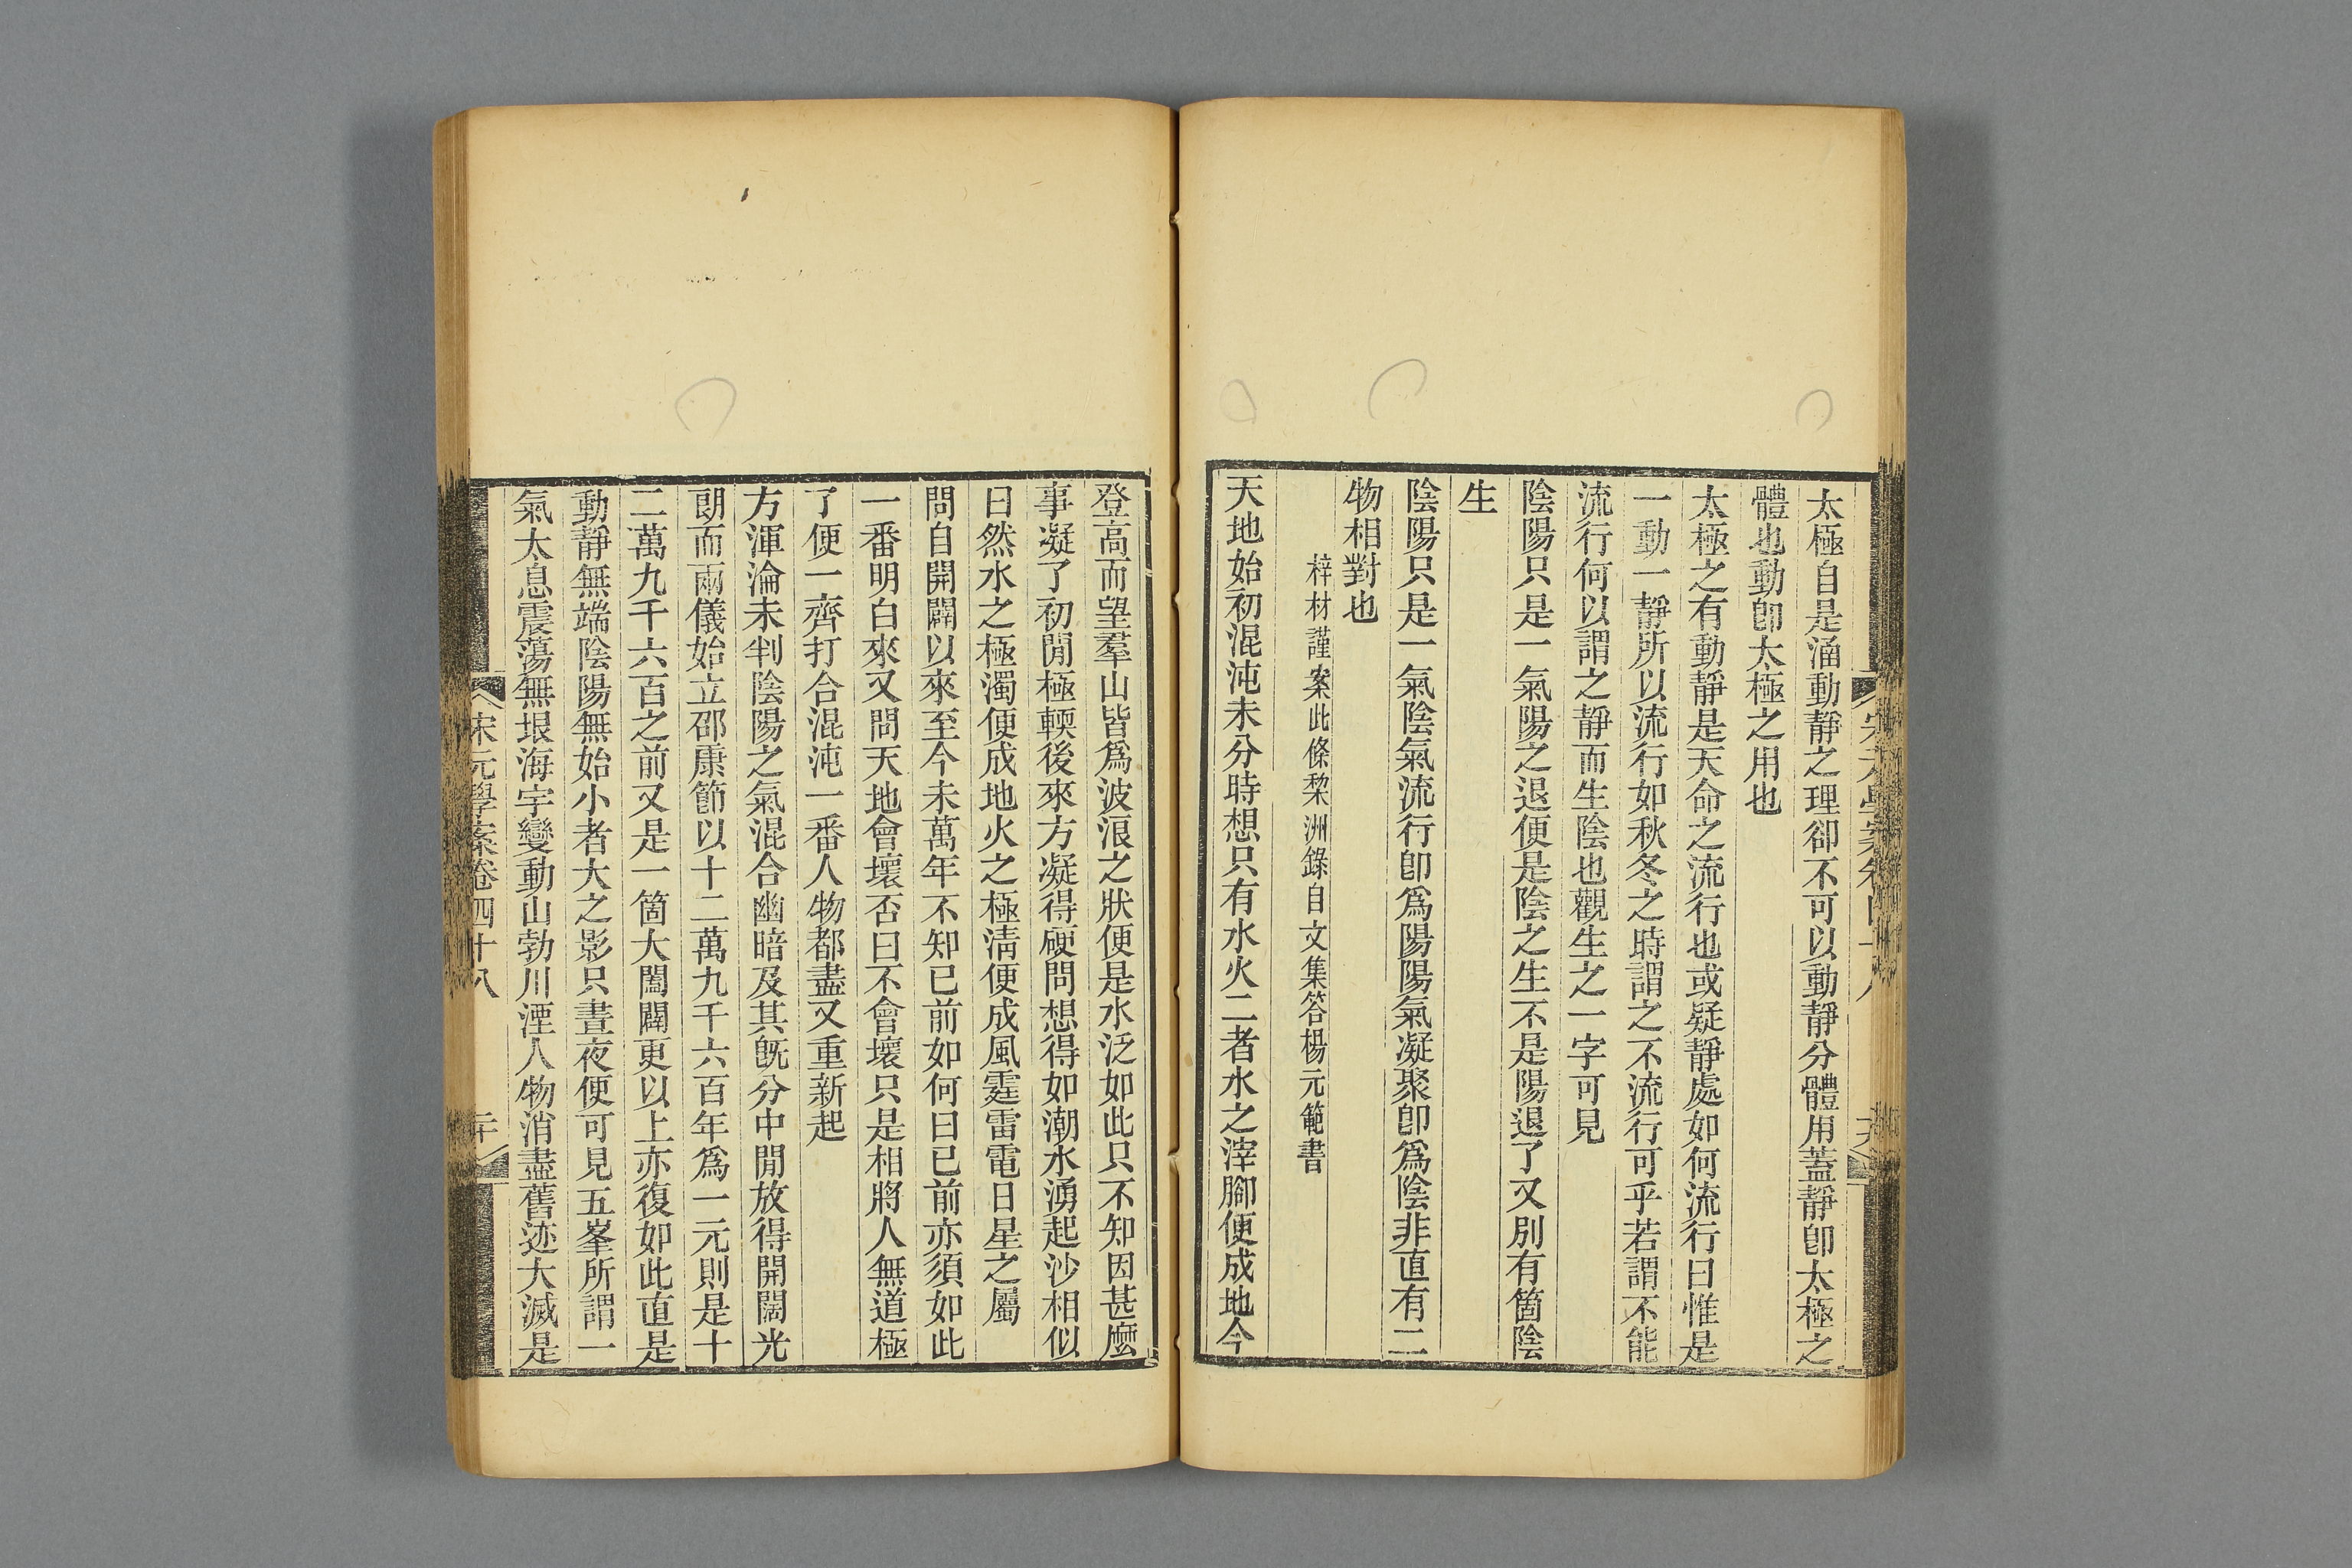 太極自是涵動靜之理卻不可以動靜分體用蓋靜卽太極之
體也動卽太極之用也
太極之有動靜是天命之流行也或疑靜處如何流行曰惟是
一動一靜所以流行如秋冬之時謂之不流行可乎若謂不能
流行何以謂之靜而生陰也觀生之一字可見
陰陽只是一氣陽之退便是陰之生不是陽退了又別有箇陰
生
陰陽只是一氣陰氣流行卽爲陽陽氣凝聚卽爲陰非直有二
物相對也
梓材謹案此條棃洲錄自文集答楊元範書
天地始初混沌未分時想只有水火二者水之滓腳便成地今
登高而望羣山皆爲波浪之狀便是水泛如此只不知因甚麼
事凝了初閒極輭後來方凝得硬問想得如潮水湧起沙相似
曰然水之極濁便成地火之極淸便成風霆雷電日星之屬
問自開闢以來至今未萬年不知已前如何曰已前亦須如此
一番明白來又問天地會壞否曰不會壞只是相將人無道極
了便一齊打合混沌一番人物都盡又重新起
方渾淪未判陰陽之氣混合幽暗及其旣分中閒放得開闊光
朗而兩儀始立邵康節以十二萬九千六百年爲一元則是十
二萬九千六百之前又是一箇大闔闢更以上亦復如此直是
動靜無端陰陽無始小者大之影只晝夜便可見五峯所謂一
氣太息震蕩無垠海宇變動山勃川湮人物消盡舊迹大滅是
宋元學案卷四十八